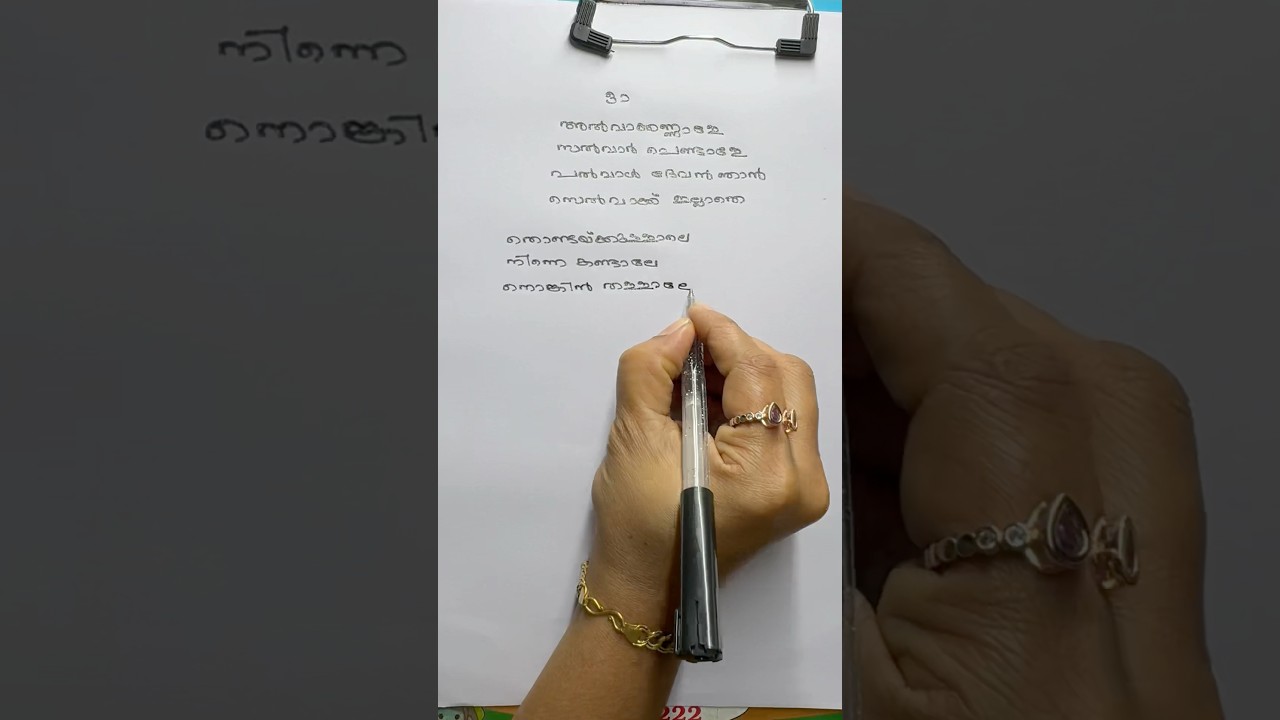 അൽവാക്കണ്ണാളേ
സൽവാർ പെണ്ടാളേ
പൽവാൾ ദേവൻ ഞാൻ
സെൽവാക്ക് ഇല്ലാതെ
തൊണ്ടയ്ക്കുച്ചാലെ
നിന്നെ കണ്ടാലേ
നൊങ്കിൻ തച്ചാലേ
222